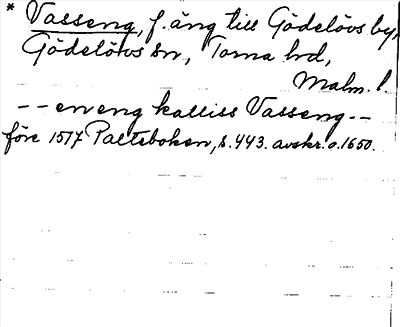 * Vasseng, f. äng till Gödelövs by,
Gödelövs sn, Torna hd,
Malm. l.
-- en eng kalliss Vasseng --
före 1517 Palteboken, s. 443. avskr. o. 1650.